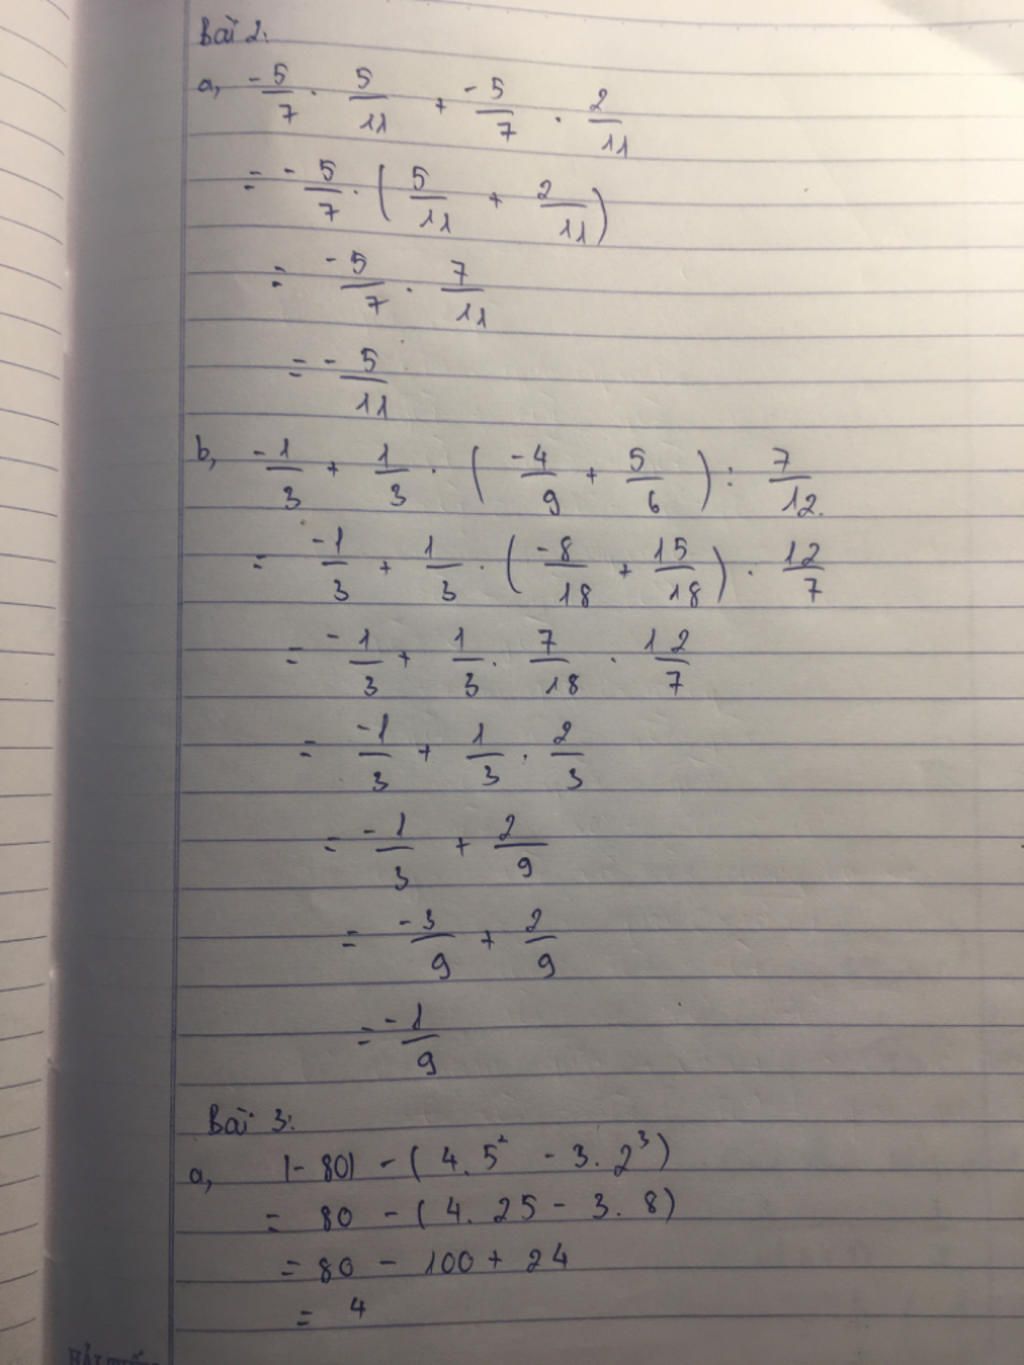 Bài 2:
a, -5/7 . 5/11 + -5/7 . 2/11
= -5/7 . (5/11 + 2/11)
= -5/7 . 7/11
= -5/11
b, -1/3 + 1/3 . (-4/9 + 5/6) : 7/12.
= -1/3 + 1/3 . (-8/18 + 15/18) . 12/7
= -1/3 + 1/3 . 7/18 . 12/7
= -1/3 + 1/3 . 2/3
= -1/3 + 2/9
= -3/9 + 2/9
= -1/9
Bài 3:
a, |-80| - (4.5² - 3.2³)
= 80 - (4.25 - 3.8)
= 80 - 100 + 24
= 4